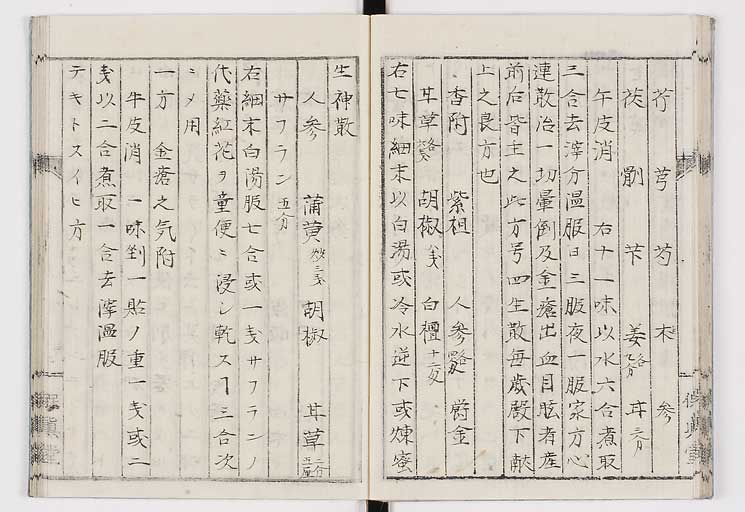 芍 芎 芍 木 参
茯 剛 芐 姜 各七分 甘 三分
午皮消 右十一味以水六合煮取
三合去滓分温服日三服夜一服家方心
連散治一切暈倒及金瘡出血目眩者産
前后皆主之此方号四生散毎歳殿下献
上之良方也
香附 紫祖 人参 爵金
甘草 胡椒 八戔 白檀 十二戔
右七味細末以白湯或冷水送下或煉蜜
生神散
人参 蒲黄 炒三戔 胡椒 甘草 二分
サフラン 五分
右細末白湯服七合或一戔サフランノ
代藥紅花ヲ童便ニ浸シ乾スヿ三合次
ニメ用
一方 金瘡之気附
牛皮消 一味剉一貼ノ重一戔或二
戔以二合煮取一合去滓温服
テキトスイヒ方